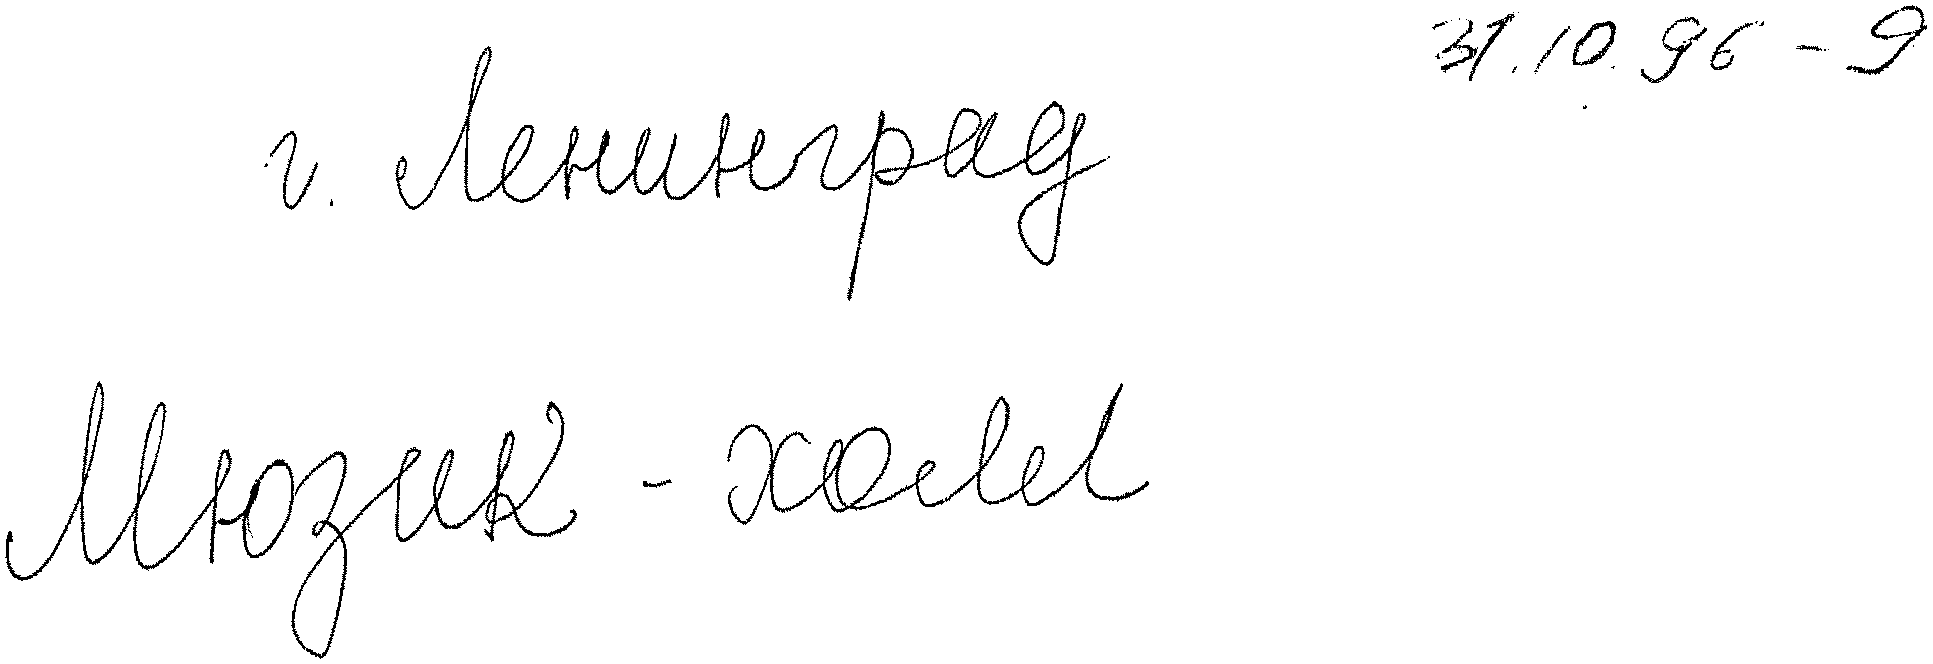 31.10.96-9
г. Ленинград
Мюзик-холл